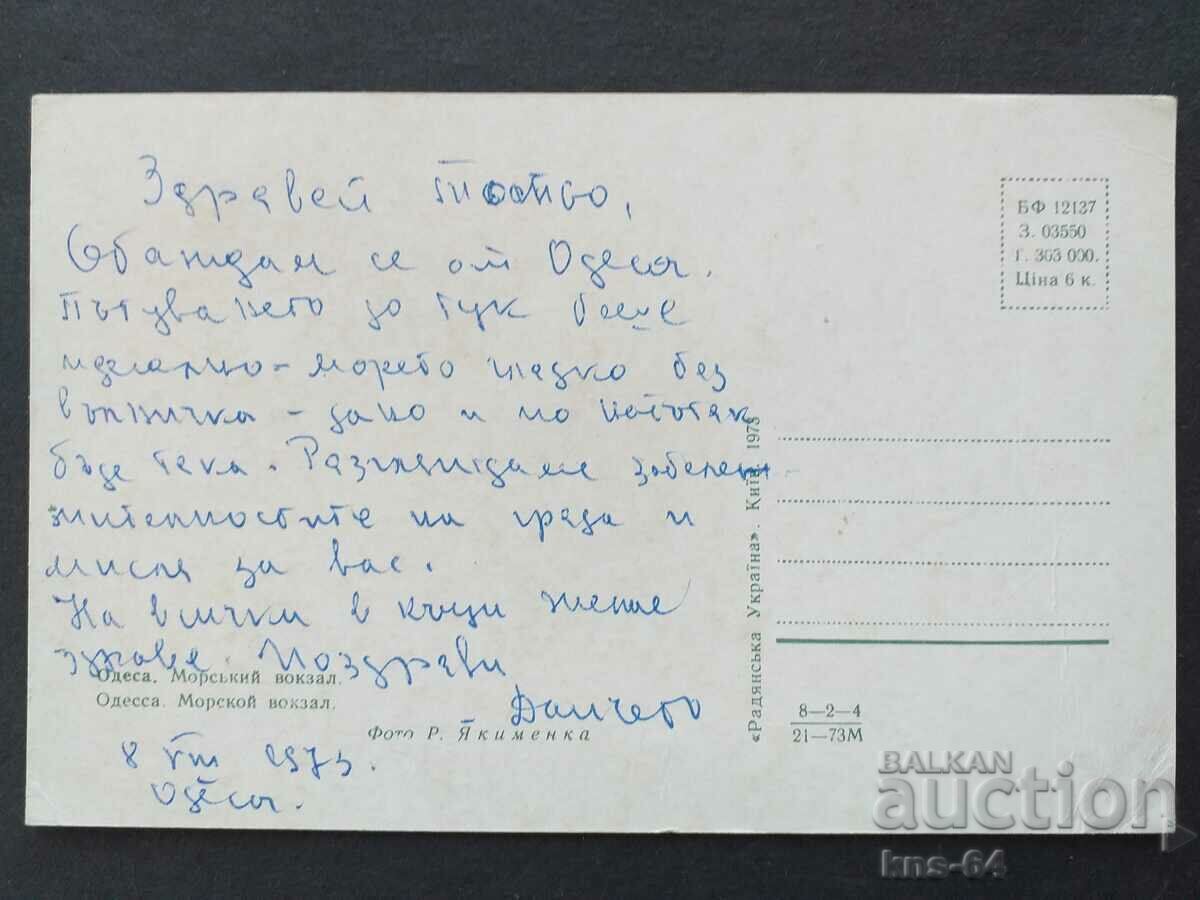 Здравей
Обаждам се от Одеса.
Пътуването до тук беше
идеално - морето гладко без
вълничка - дано и по нататък
бъде така. Разглеждаме забеле-
жителностите на града и
мисля за вас.
На всички в къщи желая
здраве. Поздрави
Данчето
8 VIII 1973.
Одеса.
Одеса. Морський вокзал.
Одесса. Морской вокзал.
Фото Р. Якименка
«Радянська Україна». Київ. 1973
БФ 12137
З. 03550
Т. 363 000.
Ціна 6 к.
8—2—4
21—73М
BALKAN
auction
kns-64